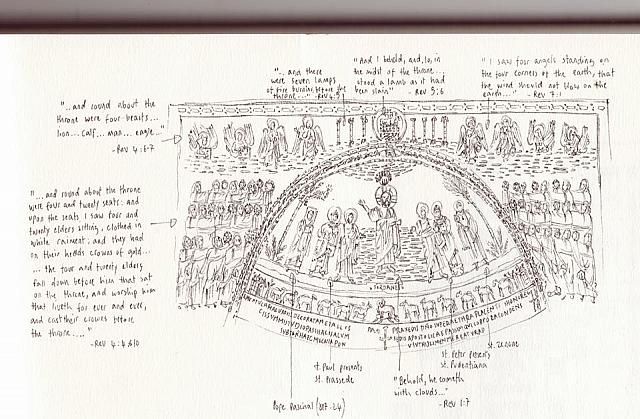 "... and there
were seven lamps
of fire burning before the
throne..." -Rev 4:
"And I beheld, and, lo, in
the midst of the throne...
stood a lamb as it had
been slain" - Rev 5:6
"I saw four angels standing on
the four corners of the earth, that
the wind should not blow on the
earth..." - Rev 7:1
"... and round about the
throne were four beasts...
lion... calf... man... eagle..."
-Rev 4:6-7
"... and round about the throne
were four and twenty seats: and
upon the seats I saw four and
twenty elders sitting, clothed in
white raiment; and they had
on their heads crowns of gold...
... the four and twenty elders
fall down before him that sat
on the throne, and worship him
that liveth for ever and ever,
and cast their crowns before
the throne...."
-Rev 4:4 & 10
IORDANES
St. Paul presents
St. Prassede
St. Peter presents
St. Pudentiana
St. Zenone
"Behold, he cometh
with clouds..."
-Rev 1:7
Pope Paschal (817-24)